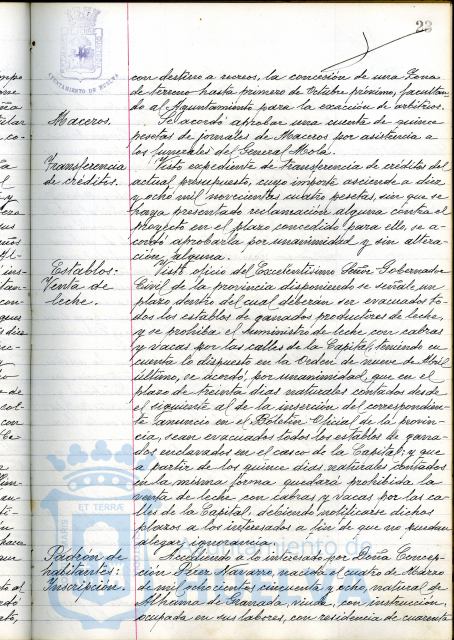 23
AYUNTAMIENTO DE HUELVA
con destino a recreos, la concesión de una zona
de terreno hasta primero de Octubre próximo, facultan
do al Ayuntamiento para la exacción de arbitrios.
Maceros.
Se acordó aprobar una cuenta de quince
pesetas de jornales de Maceros por asistencia a
los funerales del General Mola.
Transferencia
de créditos.
Visto expediente de transferencia de créditos del
actual presupuesto, cuyo importe asciende a diez
y ocho mil novecientas cuatro pesetas, sin que se
haya presentado reclamación alguna contra el
proyecto en el plazo concedido para ello, se a-
cordó aprobarla por unanimidad y sin altera-
ción alguna.
Establos:
Venta de
leche.
Visto oficio del Excelentísimo Señor Gobernador
Civil de la provincia disponiendo se señale un
plazo dentro del cual deberán ser evacuados to-
dos los establos de ganados productores de leche,
y se prohiba el suministro de leche con cabras
y vacas por las calles de la Capital, teniendo en
cuenta lo dispuesto en la Orden de nueve de Abril
último, se acordó, por unanimidad, que en el
plazo de treinta días naturales contados desde
el siguiente al de la inserción del correspondien-
te anuncio en el Boletín Oficial de la provin-
cia, sean evacuados todos los establos de gana-
dos enclavados en el casco de la Capital; y que
a partir de los quince días naturales contados
en la misma forma quedará prohibida la
venta de leche con cabras y vacas por las ca-
lles de la Capital, debiendo notificarse dichos
plazos a los interesados a fin de que no puedan
alegar ignorancia.
Padrón de
habitantes:
Inscripción.
Accediendo a lo interesado por Doña Concep-
ción Navarro, nacida el cuatro de Marzo
de mil ochocientos cincuenta y ocho, natural de
Alhama de Granada, viuda, con instrucción,
ocupada en sus labores, con residencia de cuarenta
ET TERRÆ
Ayuntamiento de